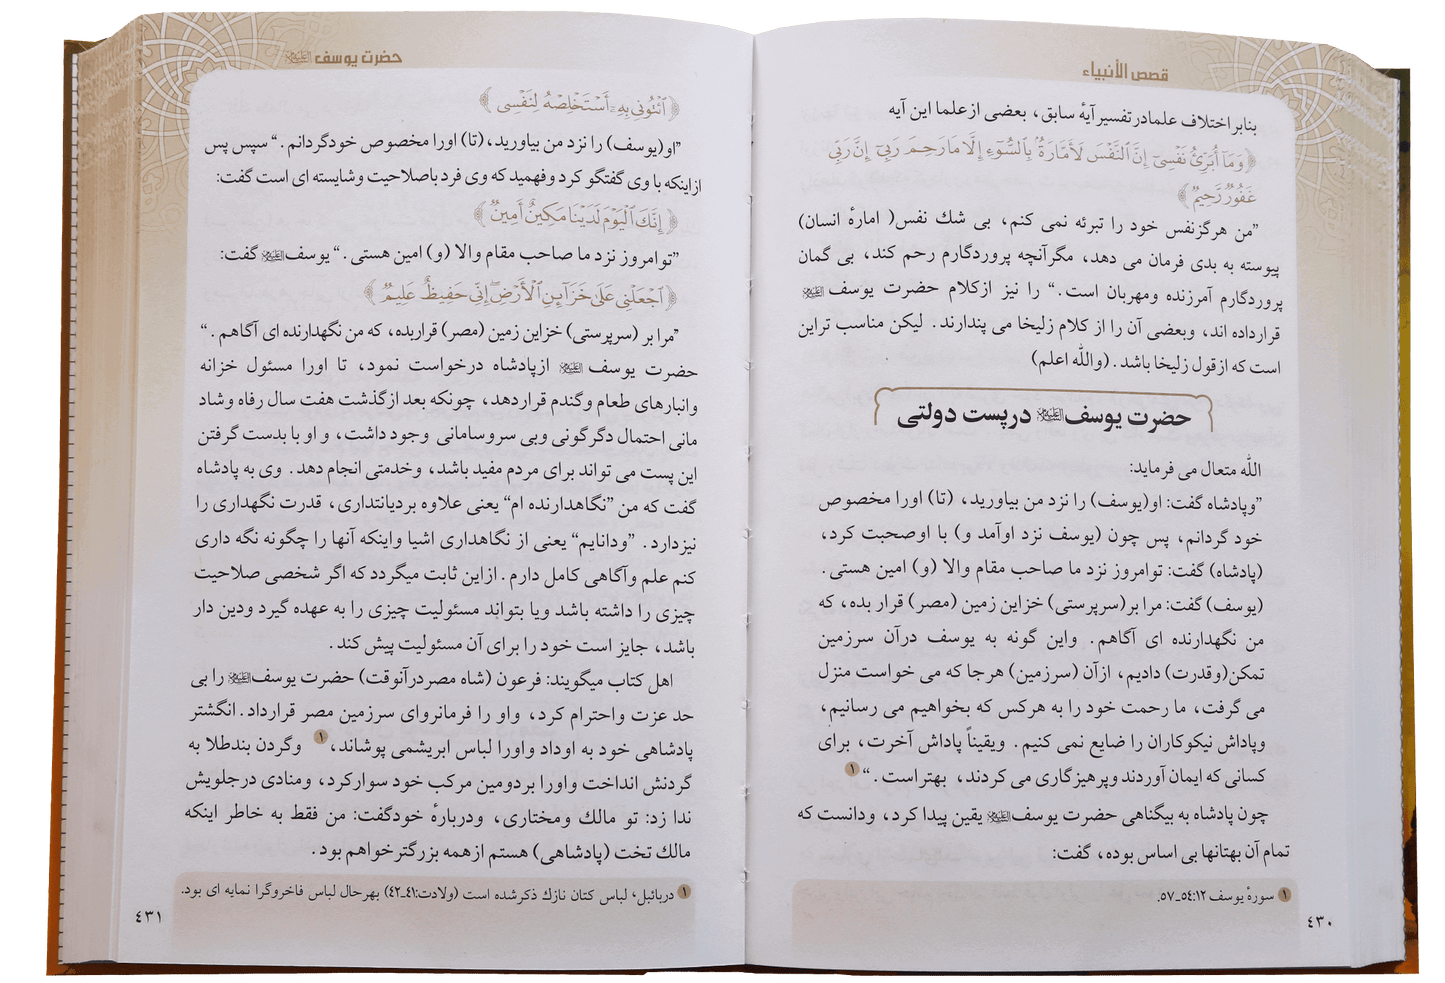 قصص الأنبياء
بنابر اختلاف علما در تفسیر آیهٔ سابق، بعضی از علما این آیه
﴿وَمَآ أُبَرِّئُ نَفْسِیٓ إِنَّ ٱلنَّفْسَ لَأَمَّارَةٌۢ بِٱلسُّوٓءِ إِلَّا مَا رَحِمَ رَبِّیٓ إِنَّ رَبِّی
غَفُورٌ رَّحِیمٌ﴾
”من هرگز نفس خود را تبرئه نمی کنم، بی شك نفس( امارهٔ انسان)
پیوسته به بدی فرمان می دهد، مگر آنچه پروردگارم رحم کند، بی گمان
پروردگارم آمرزنده ومهربان است.“ را نیز از کلام حضرت یوسف
قرارداده اند، وبعضی آن را از کلام زلیخا می پندارند. لیکن مناسب تراین
است که از قول زلیخا باشد. (والله اعلم)
حضرت یوسف درپست دولتی
الله متعال می فرماید:
”وپادشاه گفت: او(یوسف) را نزد من بیاورید، (تا) اورا مخصوص
خود گردانم، پس چون (یوسف نزد اوآمد و) با اوصحبت کرد،
(پادشاه) گفت: توامروز نزد ما صاحب مقام والا (و) امین هستی.
(یوسف) گفت: مرا بر(سرپرستی) خزاین زمین (مصر) قرار بده، که
من نگهدارنده ای آگاهم. واین گونه به یوسف درآن سرزمین
تمکن(وقدرت) دادیم، ازآن (سرزمین) هرجا که می خواست منزل
می گرفت، ما رحمت خود را به هرکس که بخواهیم می رسانیم،
وپاداش نیکوکاران را ضایع نمی کنیم. ویقیناً پاداش آخرت، برای
کسانی که ایمان آوردند وپرهیزگاری می کردند، بهتراست.“ ۱
چون پادشاه به بیگناهی حضرت یوسف یقین پیدا کرد، ودانست که
تمام آن بهتانها بی اساس بوده، گفت:
۱ سورهٔ یوسف ۱۲:٥٤ـ٥٧.
٤٣٠
حضرت یوسف
﴿ٱئْتُونِی بِهِۦٓ أَسْتَخْلِصْهُ لِنَفْسِی﴾
”او(یوسف) را نزد من بیاورید، (تا) اورا مخصوص خودگردانم.“ سپس پس
ازاینکه با وی گفتگو کرد وفهمید که وی فرد باصلاحیت وشایسته ای است گفت:
﴿إِنَّكَ ٱلْیَوْمَ لَدَیْنَا مَكِینٌ أَمِینٌ﴾
”توامروز نزد ما صاحب مقام والا (و) امین هستی.“ یوسف گفت:
﴿ٱجْعَلْنِی عَلَىٰ خَزَآئِنِ ٱلْأَرْضِ إِنِّی حَفِیظٌ عَلِیمٌ﴾
”مرا بر (سرپرستی) خزاین زمین (مصر) قراربده، که من نگهدارنده ای آگاهم.“
حضرت یوسف ازپادشاه درخواست نمود، تا اورا مسئول خزانه
وانبارهای طعام وگندم قراردهد، چونکه بعد ازگذشت هفت سال رفاه وشاد
مانی احتمال دگرگونی وبی سروسامانی وجود داشت، و او با بدست گرفتن
این پست می تواند برای مردم مفید باشد، وخدمتی انجام دهد. وی به پادشاه
گفت که من ”نگاهدارنده ام“ یعنی علاوه بردیانتداری، قدرت نگهداری را
نیزدارد. ”ودانایم“ یعنی از نگاهداری اشیا واینکه آنها را چگونه نگه داری
کنم علم وآگاهی کامل دارم. ازاین ثابت میگردد که اگر شخصی صلاحیت
چیزی را داشته باشد ویا بتواند مسئولیت چیزی را به عهده گیرد ودین دار
باشد، جایز است خود را برای آن مسئولیت پیش کند.
اهل کتاب میگویند: فرعون (شاه مصردرآنوقت) حضرت یوسف را بی
حد عزت واحترام کرد، واو را فرمانروای سرزمین مصر قرارداد. انگشتر
پادشاهی خود به اوداد واورا لباس ابریشمی پوشاند، ۱ وگردن بندطلا به
گردنش انداخت واورا بردومین مرکب خود سوارکرد، ومنادی درجلویش
ندا زد: تو مالك ومختاری، ودربارهٔ خودگفت: من فقط به خاطر اینکه
مالك تخت (پادشاهی) هستم ازهمه بزرگترخواهم بود.
۱ دربائبل، لباس کتان نازك ذکرشده است (ولادت:٤١ـ٤٢) بهرحال لباس فاخروگرا نمایه ای بود.
٤٣١